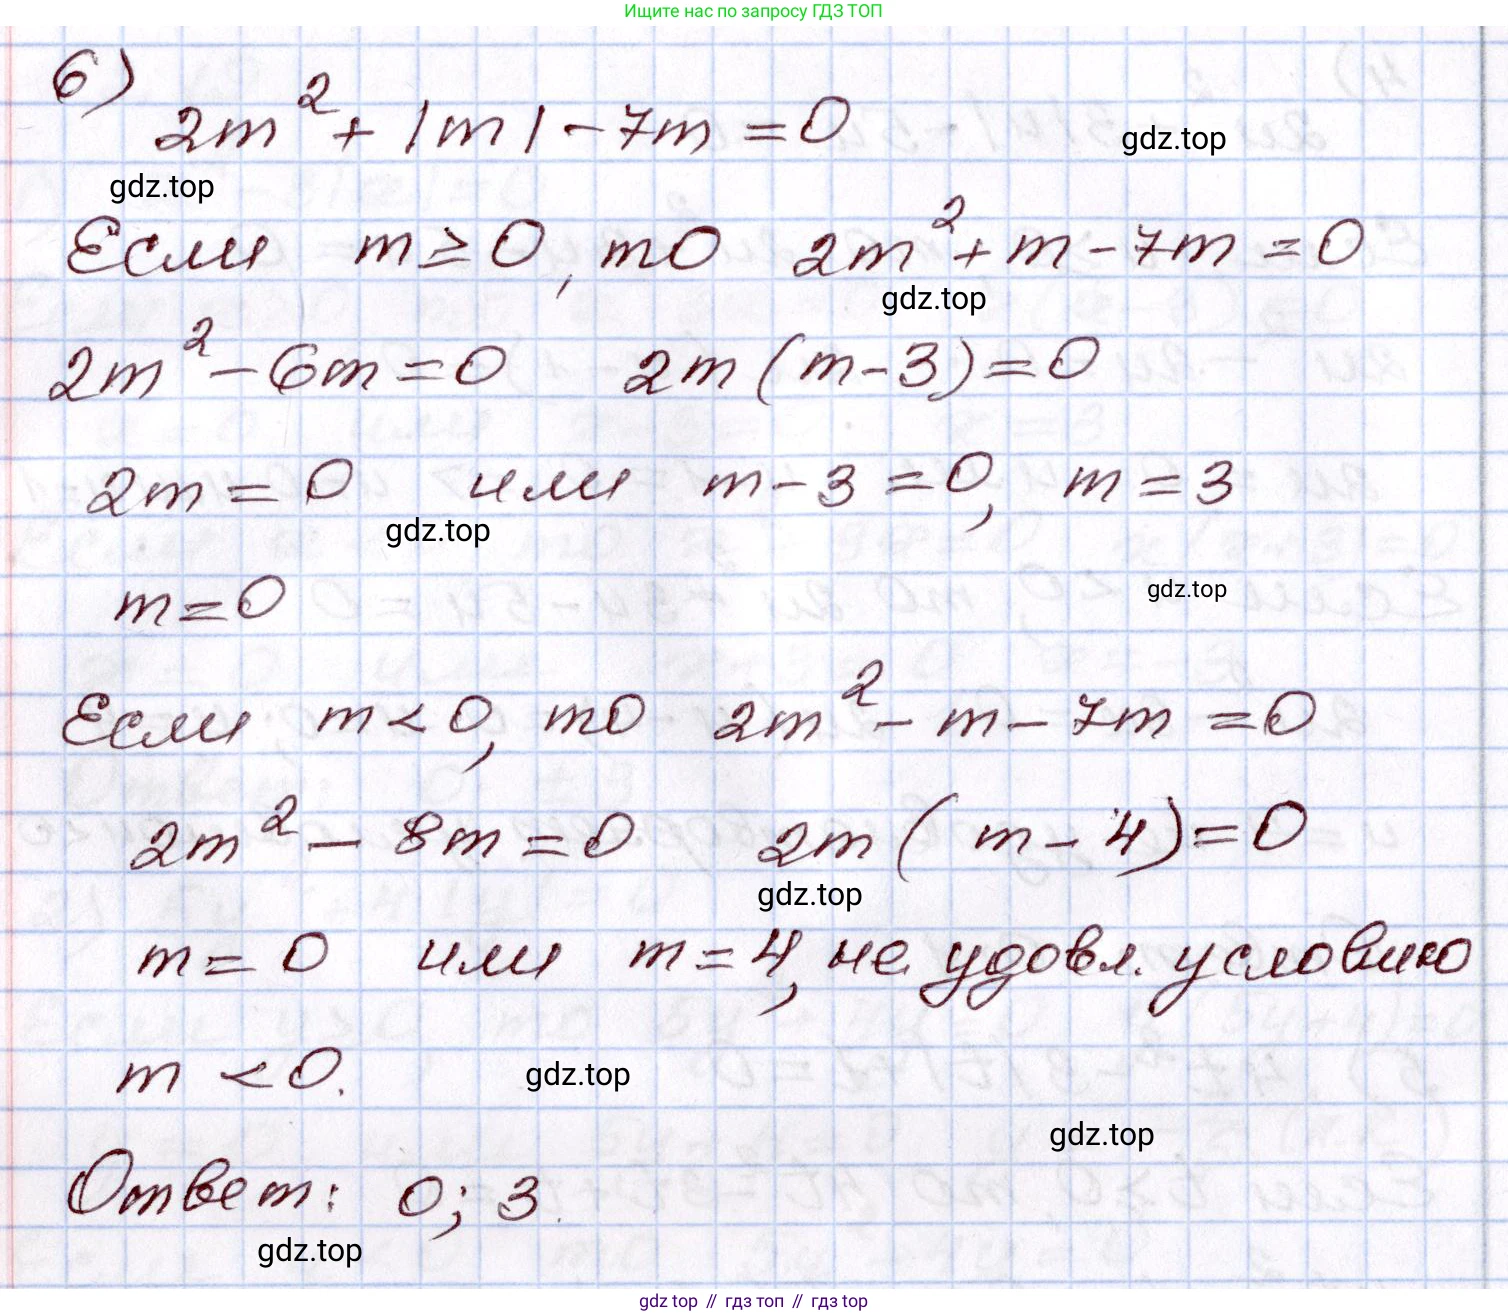 Ищите нас по запросу ГДЗ ТОП
6)
2m² + |m| - 7m = 0
gdz.top
gdz.top
Если m ≥ 0, то 2m² + m - 7m = 0
gdz.top
2m² - 6m = 0 2m(m - 3) = 0
2m = 0 или m - 3 = 0, m = 3
gdz.top
m = 0
gdz.top
Если m < 0, то 2m² - m - 7m = 0
2m² - 8m = 0 2m(m - 4) = 0
gdz.top
m = 0 или m = 4, не удовл. условию
m < 0.
gdz.top
gdz.top
Ответ: 0; 3.
gdz.top
gdz top // гдз топ // гдз top